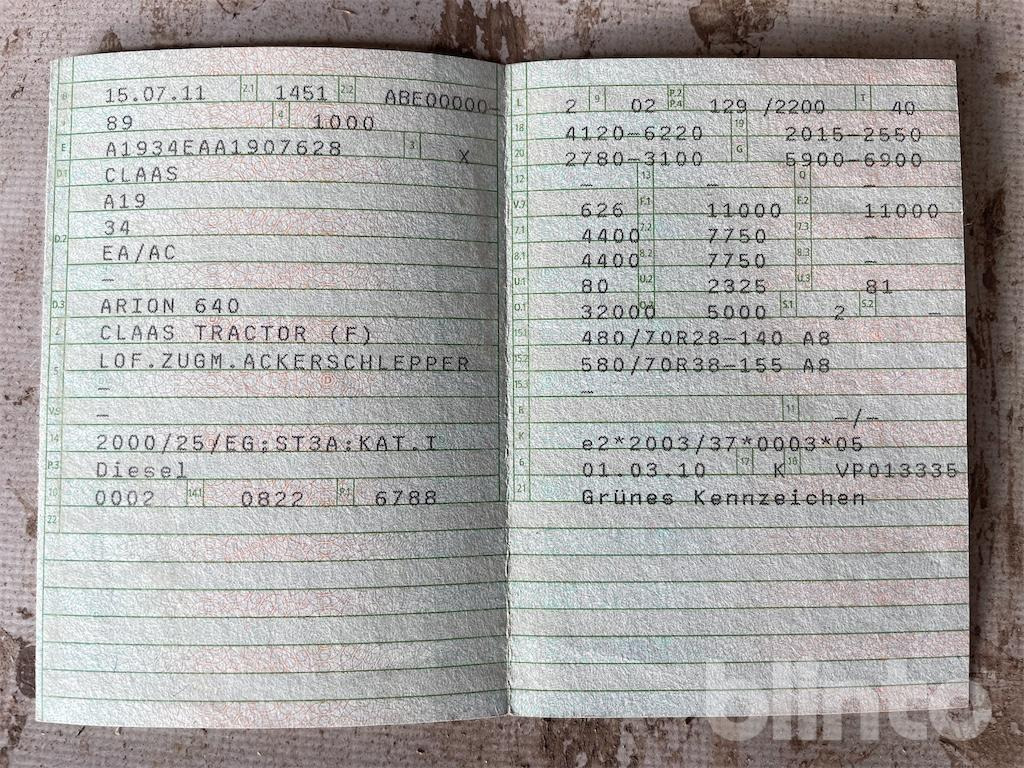 B 15.07.11 2.1 1451 2.2 ABE00000-
J 89 4 1000
E A1934EAA1907628 3 X
D.1 CLAAS
A19
34
D.2 EA/AC
—
D.3 ARION 640
2 CLAAS TRACTOR (F)
5 LOF.ZUGM.ACKERSCHLEPPER
—
V.9 —
14 2000/25/EG;ST3A:KAT.I
P.3 Diesel
10 0002 14.1 0822 P.1 6788
22
L 2 9 02 P.2 P.4 129 /2200 T 40
18 4120-6220 19 2015-2550
20 2780-3100 G 5900-6900
12 — 13 — Q —
V.7 626 F.1 11000 F.2 11000
7.1 4400 7.2 7750 7.3 —
8.1 4400 8.2 7750 8.3 —
U.1 80 U.2 2325 U.3 81
O.1 32000 O.2 5000 S.1 2 S.2 —
15.1 480/70R28-140 A8
15.2 580/70R38-155 A8
15.3 —
R 11 —/—
K e2*2003/37*0003*05
6 01.03.10 17 K 16 VP013335
21 Grünes Kennzeichen
blinto